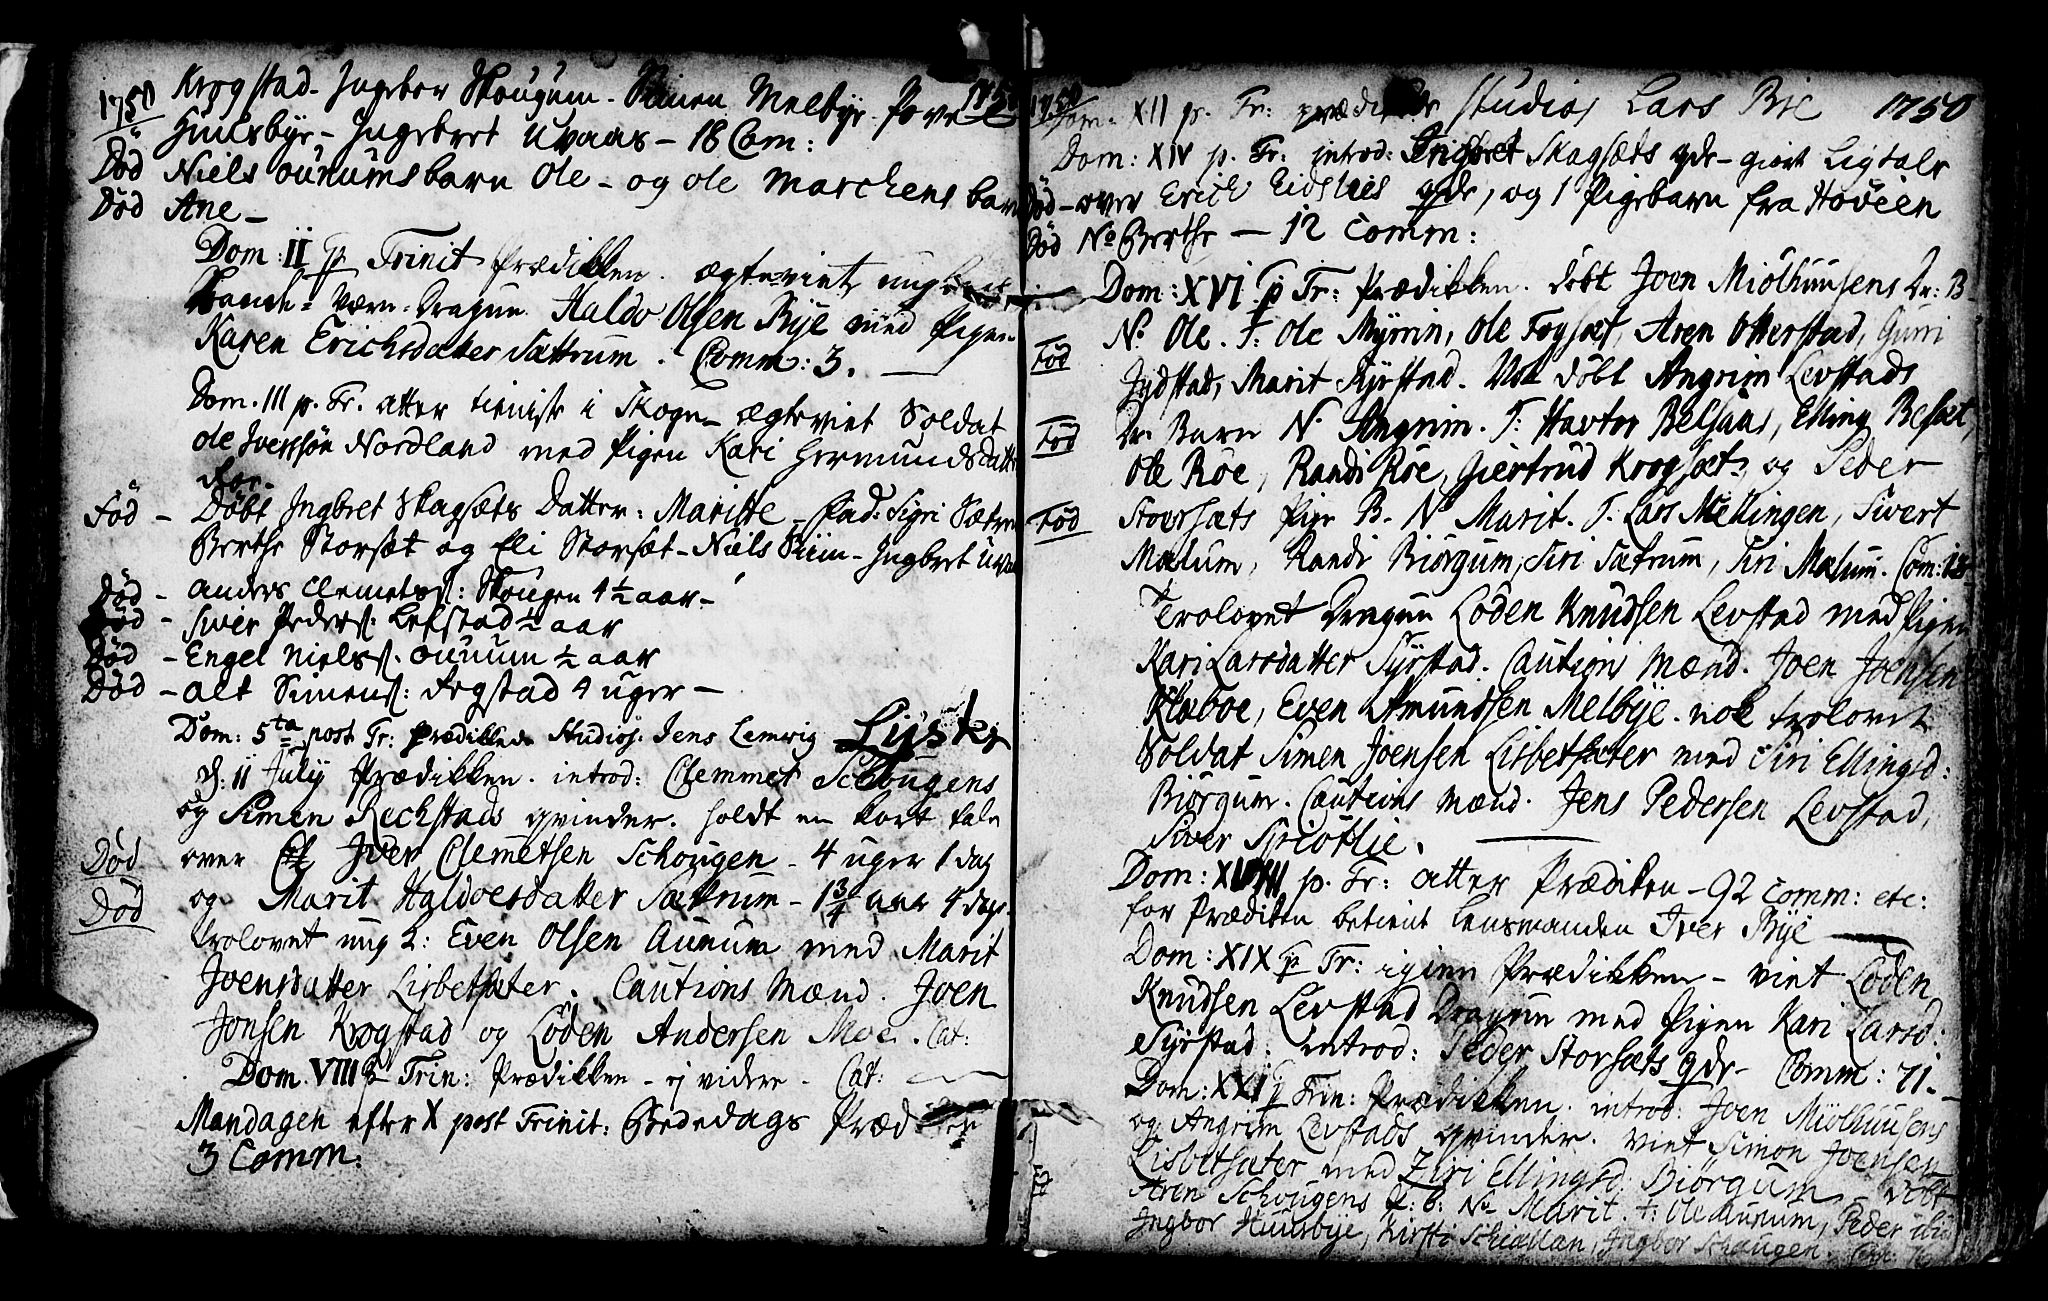 1750
Krogstad. Ingebor Skougum. Simen Melbye. Povel
1750
Huusbye - Ingebret Uvaas - 18 Com:
Død Niels Ounums barn Ole - og Ole Marchens barn
Død Ane -
Dom: II p Trinit Prædikken. ægteviet
Værn. Dragun Haldo Olsen Bye med Pigen
Karen Erichsdatter Sættrum. Comm: 3.
Dom. III p. Tr. atter tieniste i Skogn - ægteviet Soldat
Ole Iversøn Nordland med Pigen Kari Germundsdatter
Fød - Døbt Ingbret Skagsæts Datter: Maritte - Fad: Sigri Sætrum
Berthe Storsæt og Eli Storsæt - Niels Riim - Ingbret Uvaas
Død - Anders Clemets: Skougen 4 1/2 aar -
Død - Siver Peders: Lefstad 1/2 aar
Død - Engel Niels. Ounum 1/2 aar
Død - Alt Simens: Fogstad 4 uger -
Dom: 5ta post Tr: prædikede Studios: Jens Lemvig Lyster
d: 11 July Prædikken. introd: Clemmet Schougens
og Simen Reckstads qvinder. holdt en kort tale
Død over Iver Clemetsen Schougen - 4 uger 1 dag
Død og Marit Haldoesdatter Sættrum - 1 3/4 aar 4 dage.
trolovet ung 2: Even Olsen Aunum med Marit
Joensdatter Lisbetsæter. Cautions Mænd. Joen
Jonsen Krogstad og Loden Andersen Moe. Cat:
Dom. VIII p Trin: Prædikken - ej videre. Cat:
Mandagen efter X post Trinit: Bededags Præd
3 Comm:
1750
Dom. XII p. Tr: studios Lars Bie 1750
Dom: XIV p. Tr: introd: Ingbret Skagsæts qdr - giort Ligtale
Død - over Erich Eidslies qdr, og 1 Pigebarn fra Hovien
Død No Berthe - 12 Comm:
Dom: XVI p Tr: Prædikken. døbt Joen Miølhuusens Dr: B
Fød N. Ole. F: Ole Myrin, Ole Fogsæt, Aren Otterstad, Gurri
Jydstad, Marit Syrstad. Nok døbt Angrim Levstads
Fød Dr. Barn N. Angrim. F: Havtor Belsaas, Elling Besæt,
Ole Røe, Randi Røe, Giertrud Krogsæt, og Peder
Fød Storsæts Pige B. N. Marit. F. Lars Mellingen, Sivert
Mælum, Randi Biørgum, Siri Sætrum, Siri Mælum. Com: 18
Trolovet Dragun Loden Knudsen Levstad med Pigen
Kari Larsdatter Syrstad. Cautions Mænd. Joen Joensen
Klæboe, Even Amundsen Melbye. nok trolovet
Soldat Simen Joensen Lisbetsæter med Siri Ellingsd:
Biørgum. Cautions Mænd. Jens Pedersen Levstad,
Siver Spiøtlie.
Dom: XVIII p. Tr: atter Prædiken - 92 Comm: etc:
for Prædiken betient Lensmanden Iver Bye
Dom: XIX p Tr: igien Prædikken - viet Loden
Knudsen Levstad Dragun med Pigen Kari Larsd:
Syrstad: introd: Peder Storsæts qdr - Comm: 71 -
Dom: XXI p Trin: Prædikken. introd: Joen Miølhuusens
og Angrim Levstads qvinder. viet Simon Joensen
Lisbetsæter med Ziri Ellingsd: Biørgum - Døbt
Aren Schougens P: B: No Marit. F: Ole Aunum, Peder
Ingbor Huusbye, Kirsti Schiallan, Ingbor Schougen.